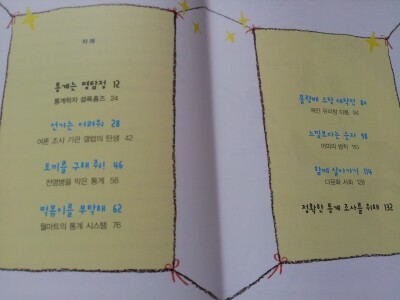 차례
통계는 명탐정 12
통계학자 셜록홈즈 24
선거는 어려워 28
여론 조사 기관 갤럽의 탄생 42
토끼를 구해 줘! 46
전염병을 막은 통계 58
떡볶이를 부탁해 62
월마트의 통계 시스템 76
대작전 80
깨진 유리창 이론
느낌보다는 숫자 98
법칙
함께 살아가기 114
다문화 사회 128
정확한 통계 조사를 위해 132